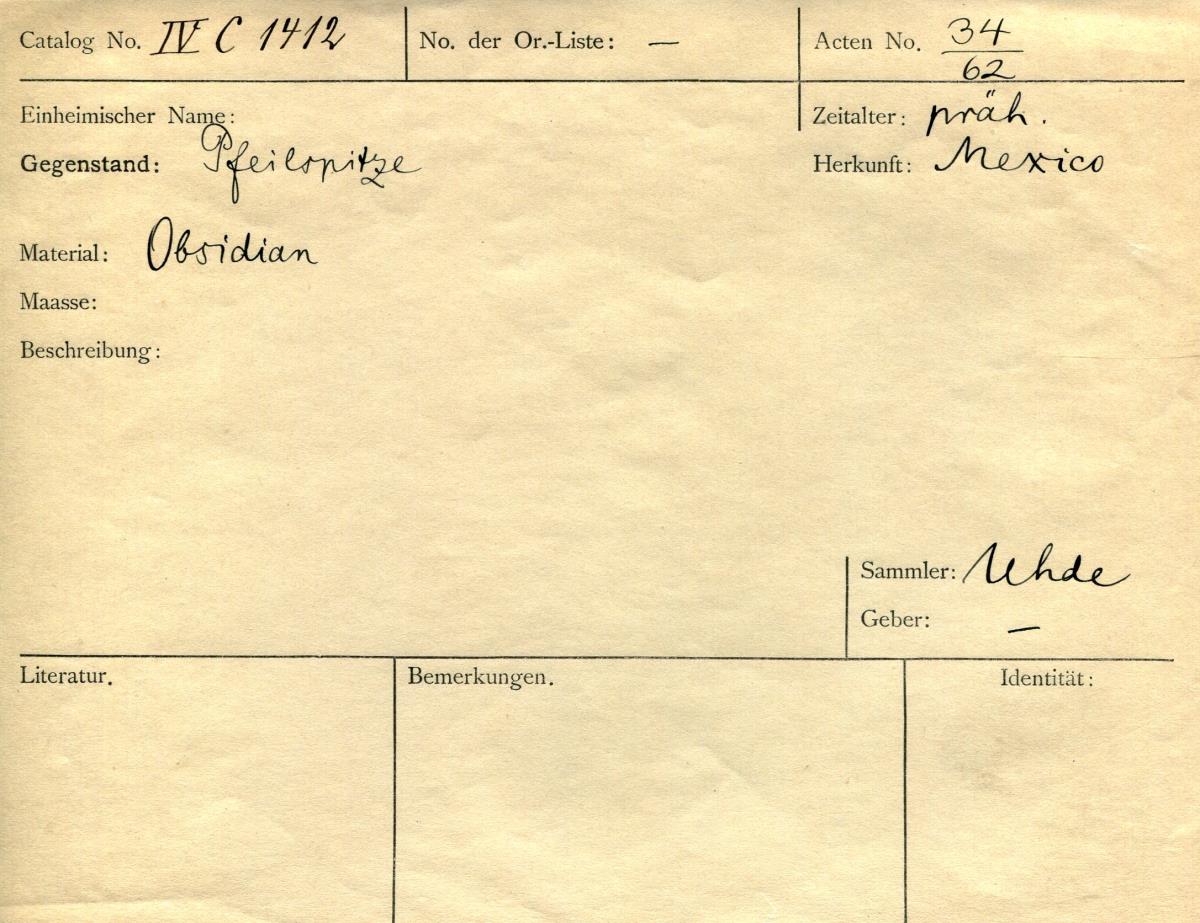 Catalog No. IV C 1412 No. der Or.-Liste: — Acten No. 34/62
Einheimischer Name: Zeitalter: präh.
Gegenstand: Pfeilspitze Herkunft: Mexico
Material: Obsidian
Maasse:
Beschreibung:
Sammler: Uhde
Geber: —
Literatur. Bemerkungen. Identität: